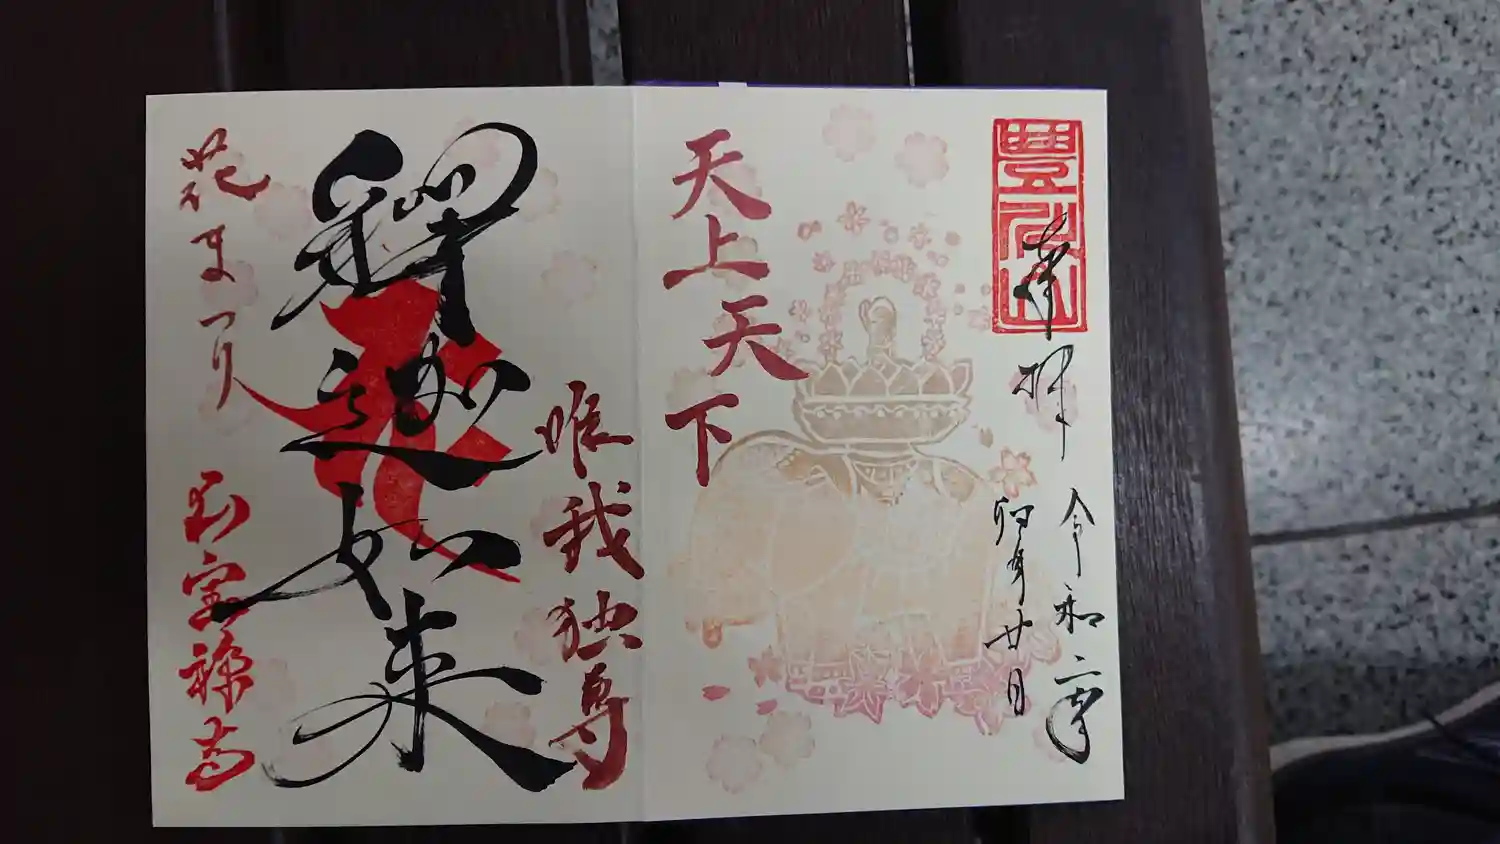 奉拝
令和二年
卯月廿日
天上天下
唯我独尊
釋迦如来
花まつり
宝禅寺